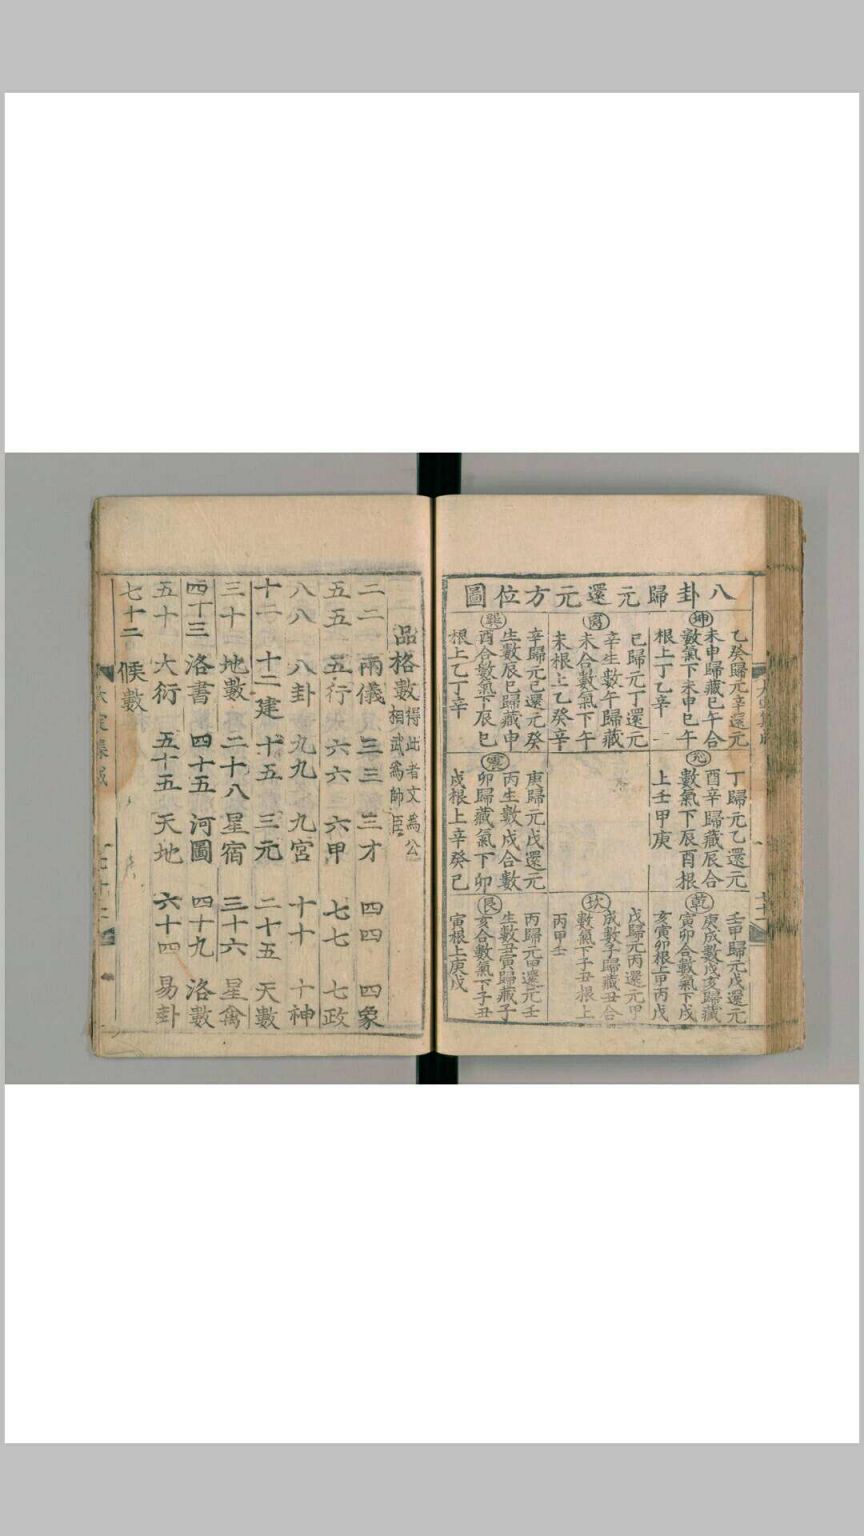 八卦歸元還元方位圖
坤
乙癸歸元辛還元
未申歸藏巳午合
數氣下未申巳午
根上丁乙辛
离
巳歸元丁還元
辛生數午歸藏
未合數氣下午
未根上乙癸辛
巽
辛歸元巳還元癸
生數辰巳歸藏申
酉合數氣下辰巳
根上乙丁辛
兊
丁歸元乙還元
酉辛歸藏辰合
數氣下辰酉根
上壬甲庚
震
庚歸元戊還元
丙生數戌合數
卯歸藏氣下卯
戌根上辛癸巳
乾
壬甲歸元戊還元
庚戌數戌亥歸藏
寅卯合數氣下戌
亥寅卯根上甲丙戊
坎
戊歸元丙還元甲
戌數子歸藏丑合
數氣下子丑根上
丙甲壬
艮
丙歸元甲還元壬
生數丑寅歸藏子
亥合數氣下子丑
寅根上庚戊
品格數 得此者文爲公
相武爲帥臣
二二 兩儀 三三 三才 四四 四象
五五 五行 六六 六甲 七七 七政
八八 八卦 九九 九宮 十十 十神
十二 十二建 十五 三元 二十五 天數
三十 地數 二十八 星宿 三十六 星禽
四十三 洛書 四十五 河圖 四十九 洛數
五十 大衍 五十五 天地 六十四 易卦
七十二 候數